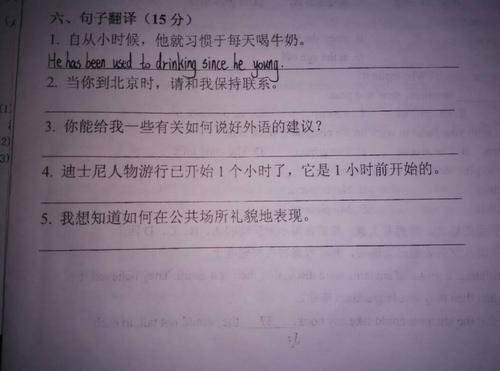 六、句子翻译（15 分）
1. 自从小时候，他就习惯于每天喝牛奶。
He has been used to drinking since he young.
2. 当你到北京时，请和我保持联系。
3. 你能给我一些有关如何说好外语的建议？
4. 迪士尼人物游行已开始 1 个小时了，它是 1 小时前开始的。
5. 我想知道如何在公共场所礼貌地表现。